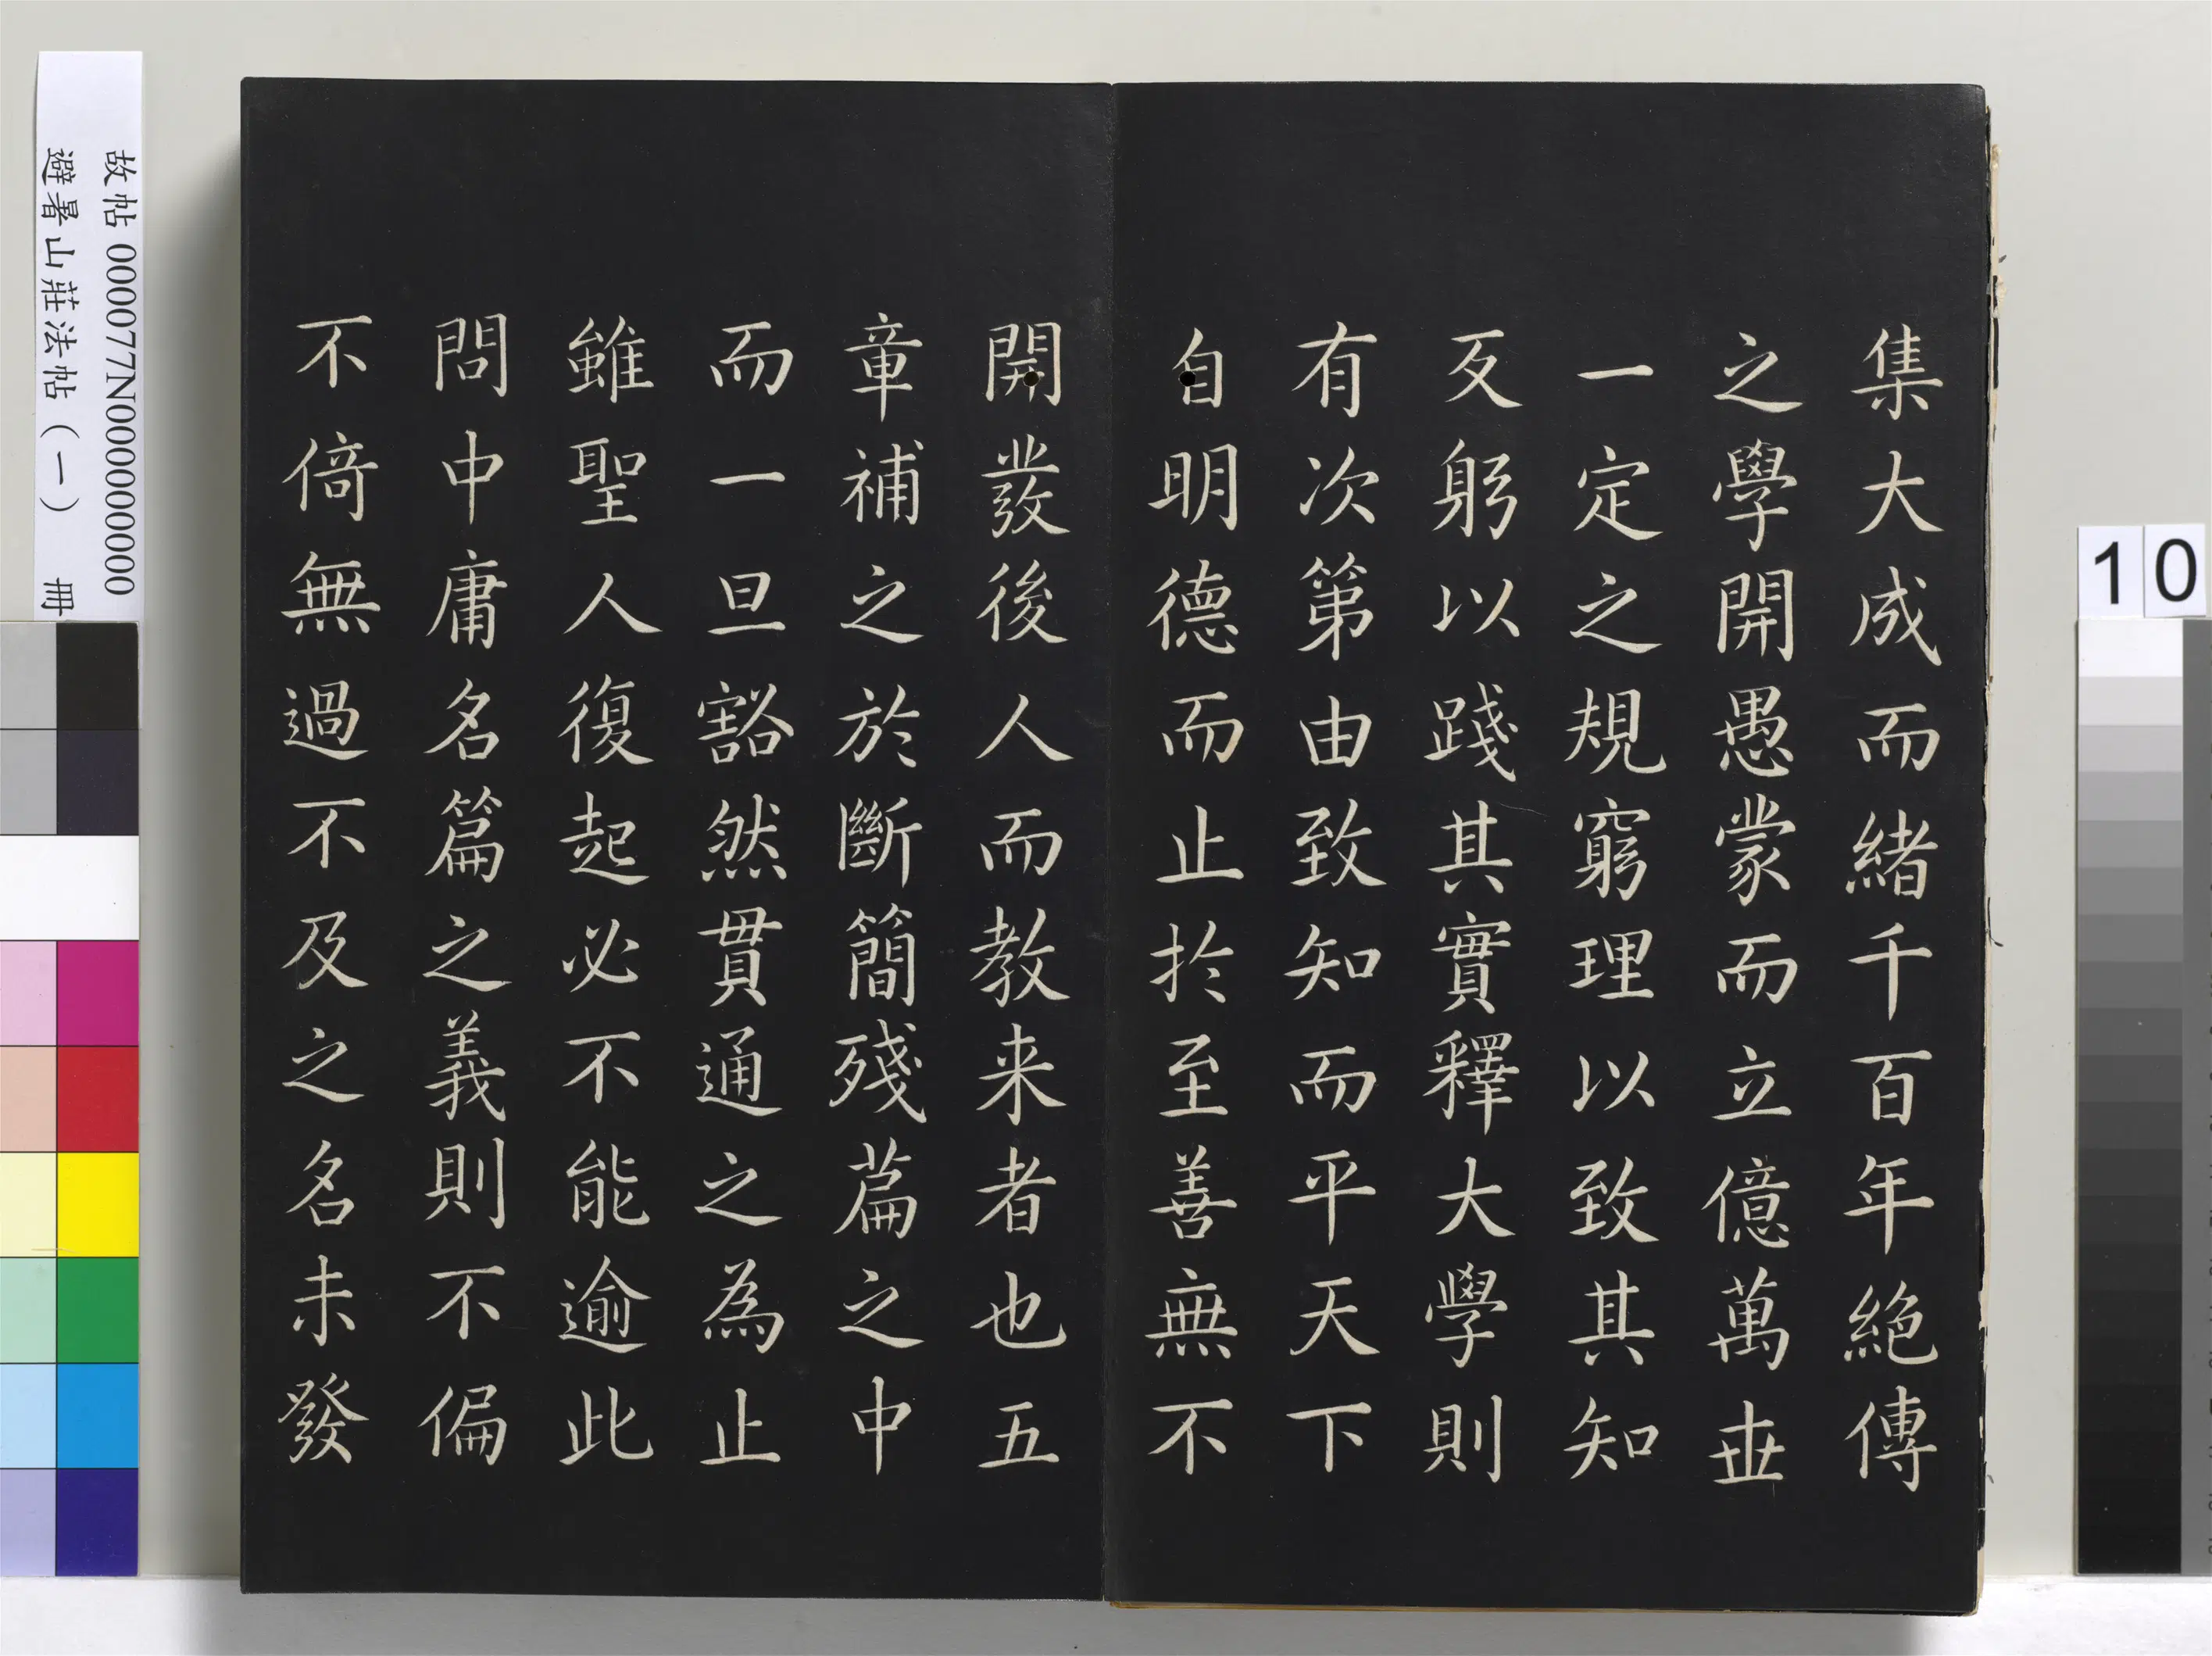 集大成而緒千百年絶傳
之學開愚蒙而立億萬世
一定之規窮理以致其知
反躬以踐其實釋大學則
有次第由致知而平天下
自明德而止於至善無不
開發後人而教来者也五
章補之於斷簡殘篇之中
而一旦豁然貫通之為止
雖聖人復起必不能逾此
問中庸名篇之義則不偏
不倚無過不及之名未發
故帖 000077N000000000
避暑山莊法帖（一） 冊
10